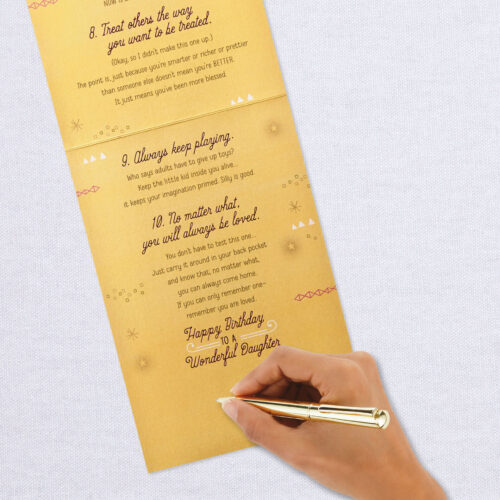 8. Treat others the way
you want to be treated.
(Okay, so I didn't make this one up.)
The point is, just because you're smarter or richer or prettier
than someone else doesn't mean you're BETTER.
It just means you've been more blessed.
9. Always keep playing.
Who says adults have to give up toys?
Keep the little kid inside you alive...
it keeps your imagination primed. Silly is good.
10. No matter what,
you will always be loved.
You don't have to test this one...
Just carry it around in your back pocket
and know that, no matter what,
you can always come home.
If you can only remember one–
remember you are loved.
Happy Birthday
TO A
Wonderful Daughter